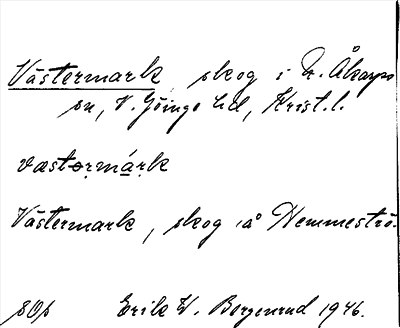 Västermark, skog i N. Åkarps
sn, V. Göinge hd, Krist. l.
västərmárk
Västermark, skog å Hemmeströ.
sOp Erik W. Bergenrud 1946.